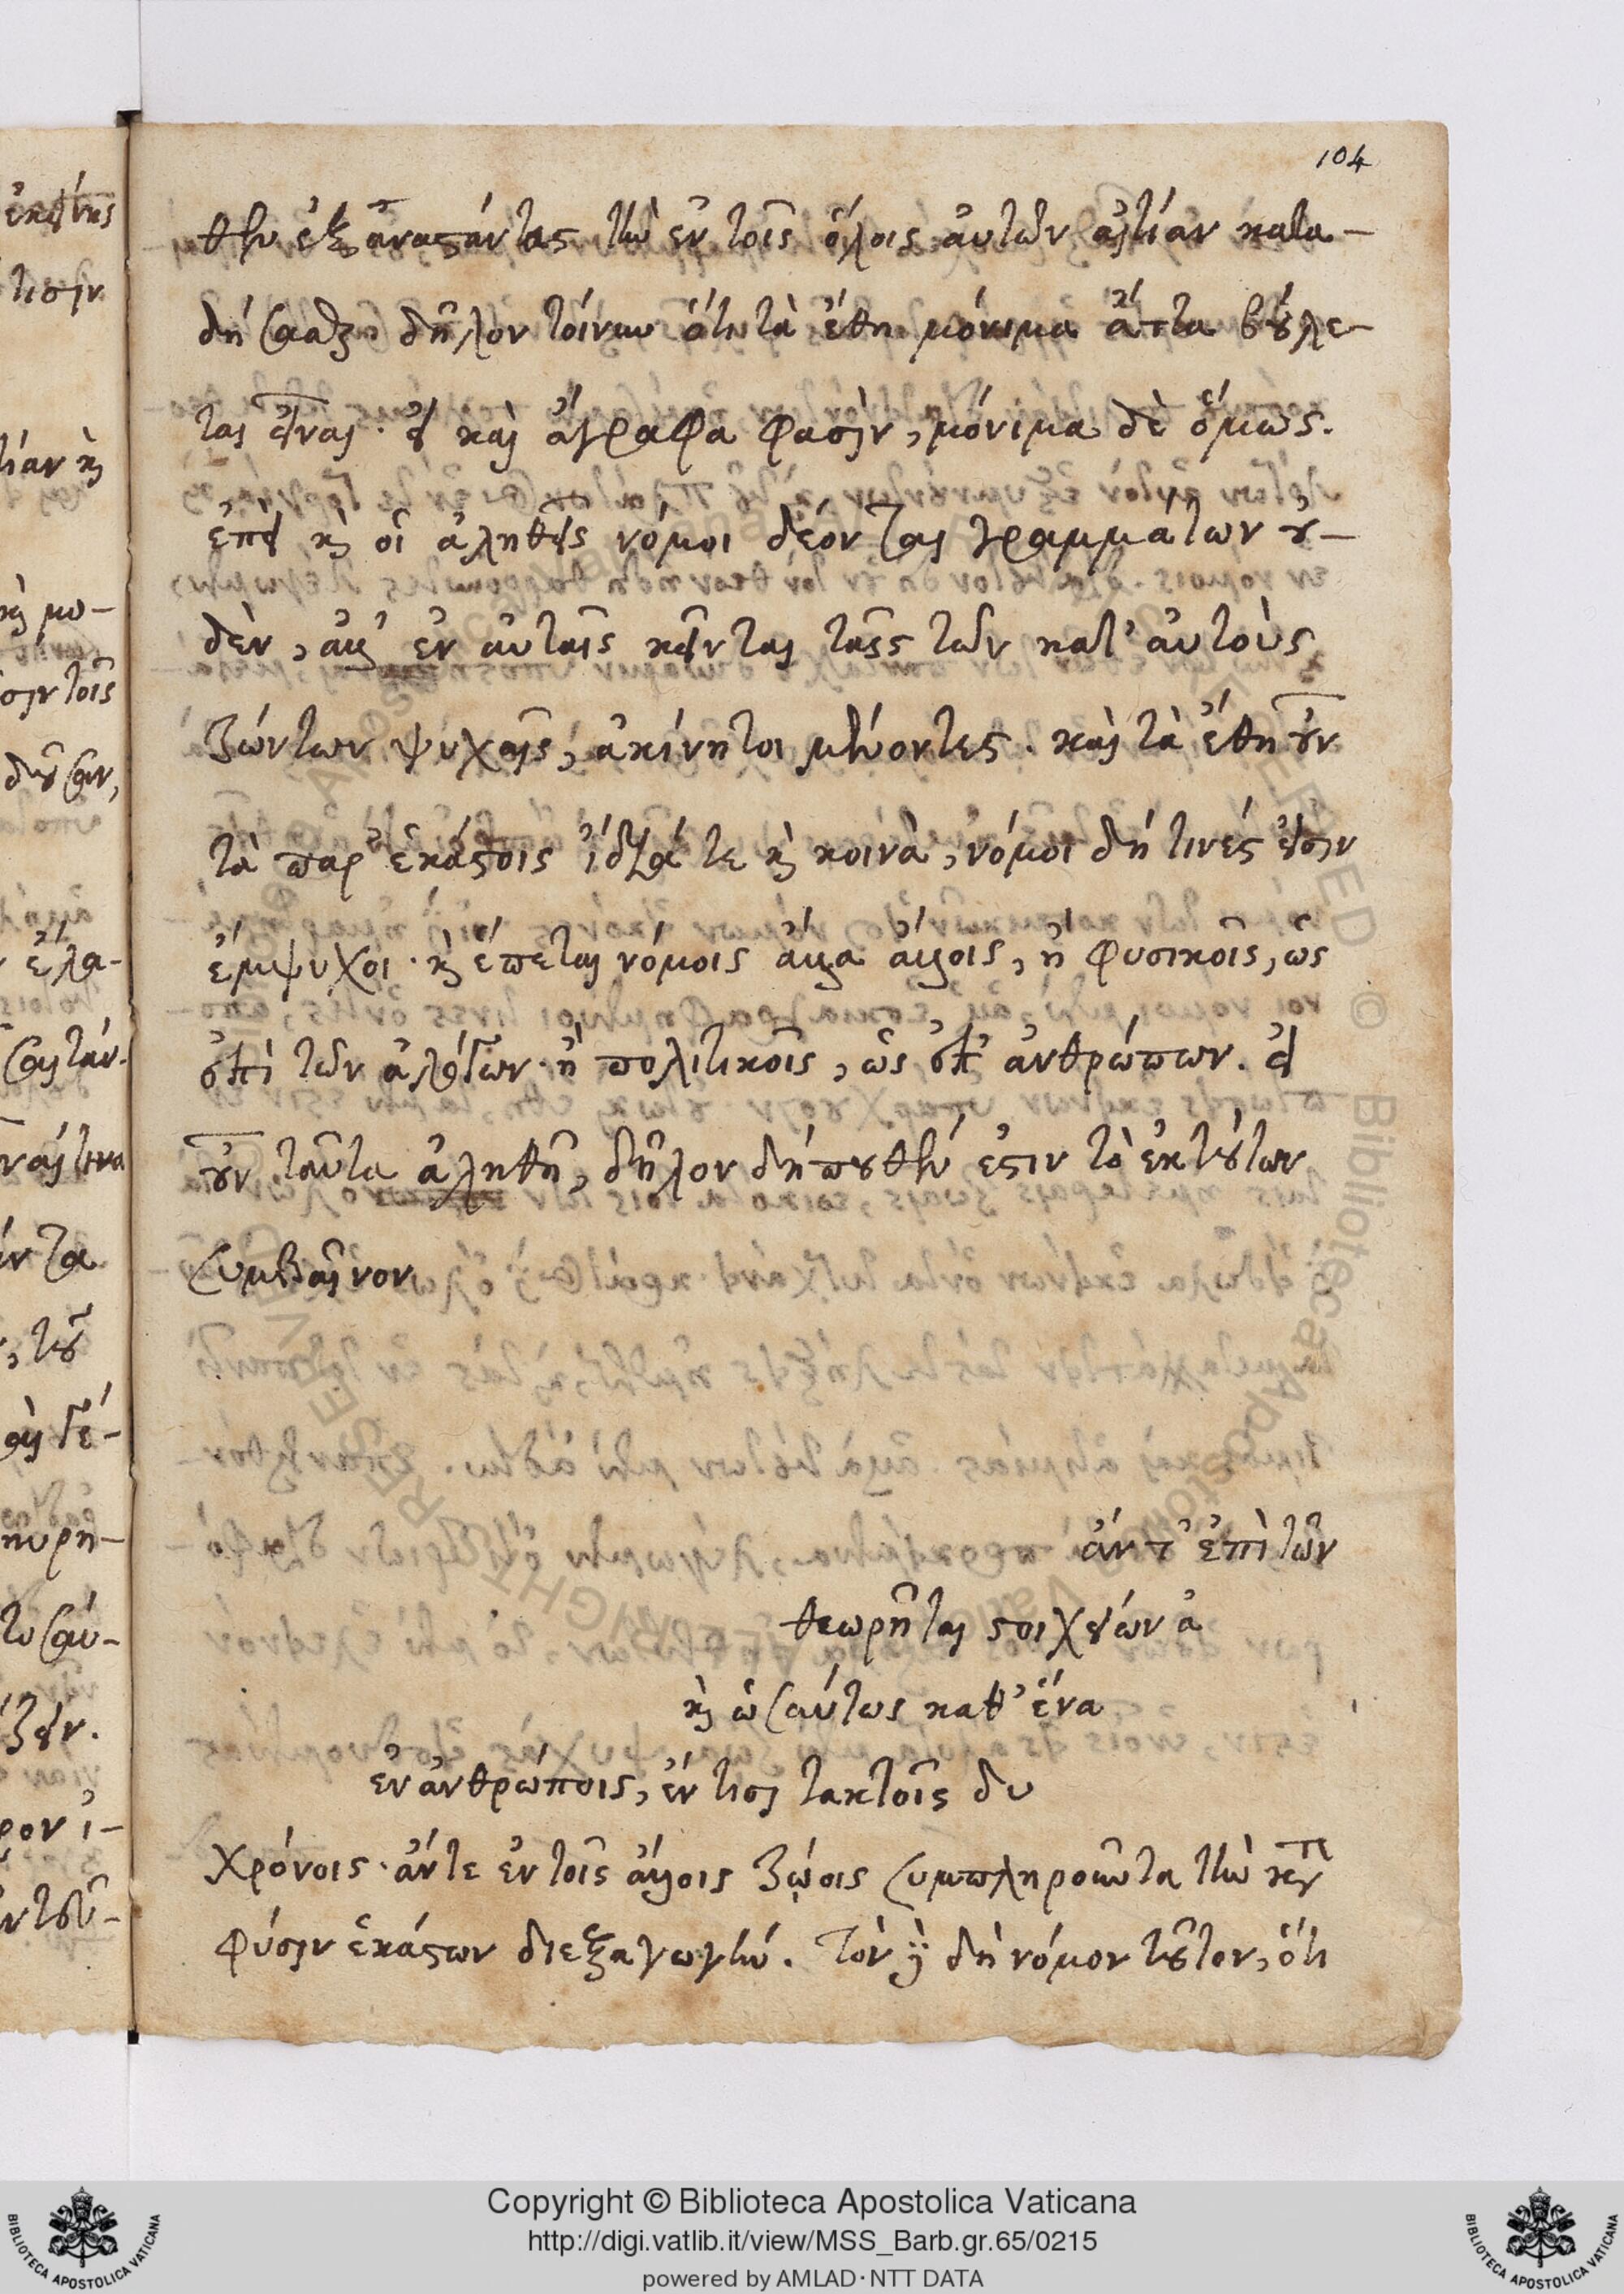 104
θεν ἐξαναστάντας τὴν ἐν τοῖς ὅλοις αὐτῶν αἰτίαν κατα-
δήσασθαι δῆλον τοίνυν ὅτι τὰ ἔθη μόνιμα ἄττα βούλε-
ται εἶναι. εἰ καὶ ἄγραφα φασὶν, μόνιμα δὲ ὅμως.
ἐπεὶ καὶ οἱ ἀληθεῖς νόμοι δέονται γραμμάτων οὐ-
δὲν, ἀλλ' ἐν αὐταῖς κεῖνται ταῖς τῶν κατ' αὐτοὺς
ζώντων ψυχαῖς, ἀκίνητοι μένοντες. καὶ τὰ ἔθη οὖν
τὰ παρ' ἑκάστοις ἴδιά τε καὶ κοινὰ, νόμοι δή τινές εἰσιν
ἔμψυχοι. καὶ ἕπεται νόμοις ἄλλα ἄλλοις, ἢ φυσικοῖς, ὡς
ἐπὶ τῶν ἀλόγων. ἢ πολιτικοῖς, ὡς ἐπ' ἀνθρώπων. εἰ
οὖν ταῦτα ἀληθῆ, δῆλον δήπουθέν ἐστιν τὸ ἐκ τούτων
συμβαῖνον
ἄν τ' ἐπὶ τῶν
θεωρῆται στοιχείων ἀ
καὶ ὡσαύτως καθ' ἕνα
ἐν ἀνθρώποις, ἔν τισι τακτοῖς δυ
χρόνοις. ἄν τε ἐν τοῖς ἄλλοις ζῴοις συμπληροῦντα τὴν κατὰ
φύσιν ἑκάστων διεξαγωγήν. τὸν γὰρ δὴ νόμον τοῦτον, ὅτι
Copyright © Biblioteca Apostolica Vaticana
http://digi.vatlib.it/view/MSS_Barb.gr.65/0215
powered by AMLAD · NTT DATA
BIBLIOTECA APOSTOLICA VATICANA
BIBLIOTECA APOSTOLICA VATICANA